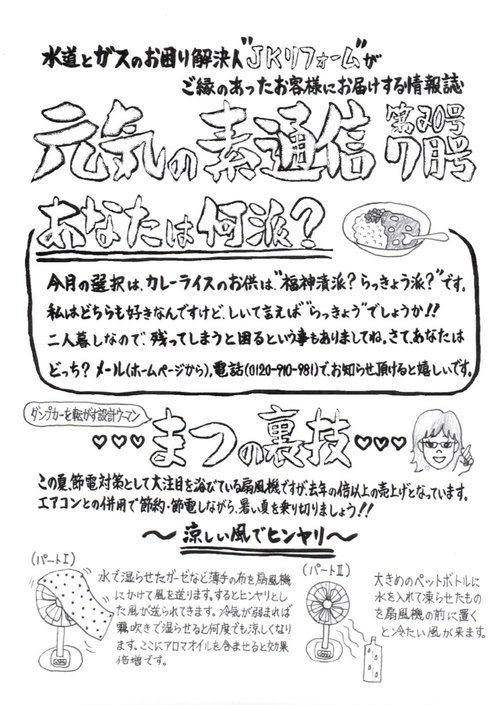 水道とガスのお困り解決人"JKリフォーム"が
ご縁のあったお客様にお届けする情報誌
元気の素通信 第20号 7月号
あなたは何派?
今月の選択は、カレーライスのお供は、"福神漬派?らっきょう派?"です。
私はどちらも好きなんですけど、しいて言えば"らっきょう"でしょうか!!
二人暮しなので、残ってしまうと困るという事もありましてね。さて、あなたは
どっち?メール(ホームページから)、電話(0120-910-981)で、お知らせ頂けると嬉しいです。
ダンプカーを転がす設計ウーマン
♡♡♡まつの裏技♡♡♡
この夏、節電対策として大注目を浴びている扇風機ですが、去年の倍以上の売上げとなっています。
エアコンとの併用で節約・節電しながら、暑い夏を乗り切りましょう!!
〜涼しい風でヒンヤリ〜
(パートⅠ)
水で湿らせたガーゼなど薄手の布を扇風機
にかけて風を送ります。するとヒンヤリとし
た風が送られてきます。冷気が弱まれば
霧吹きで湿らせると何度でも涼しくなり
ます。ここにアロマオイルを含ませると効果
倍増です。
(パートⅡ)
大きめのペットボトルに
水を入れて凍らせたもの
を扇風機の前に置く
と冷たい風が来ます。